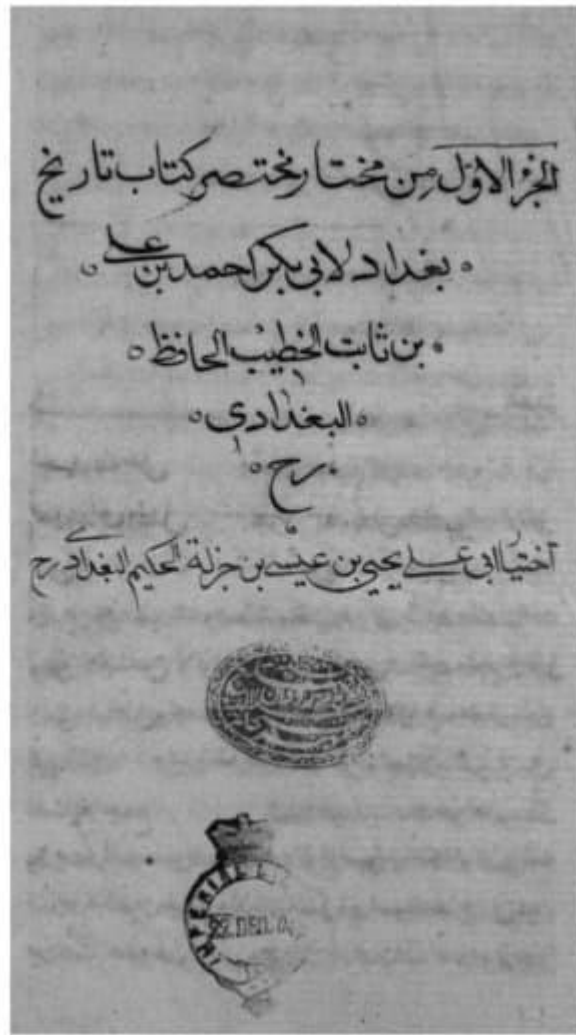 الجزء الاول من مختار مختصر كتاب تاريخ
بغداد لابي بكر احمد بن علي
بن ثابت الخطيب الحافظ
البغدادي
رح
اختيار ابي علي يحيى بن عيسى بن جزلة الحكيم البغدادي رح
IMPERIAL L
DEC.